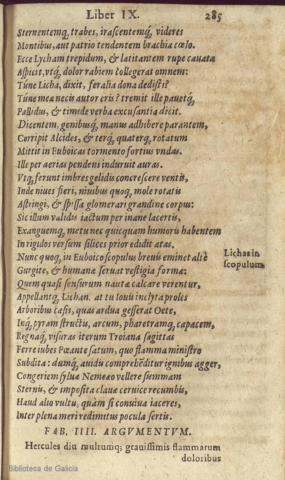 Liber IX. 285
Sternentemq, trabes, irascentemq, videres
Montibus, aut patrio tendentem brachia cœlo.
Ecce Lycham trepidum, & latitantem rupe cauata
Aspicit, vtq, dolor rabiem collegerat omnem:
Túne Licha, dixit, feralia dona dedisti?
Túne meæ necis autor eris? tremit ille pauetq,
Pallidus, & timide verba excusantia dicit.
Dicentem, genibusq, manus adhibere parantem,
Corripit Alcides, & terq, quaterq, rotatum
Mittit in Euboicas tormento fortius vndas.
Ille per aerias pendens induruit auras.
Vtq, ferunt imbres gelidis concrescere ventis,
Inde niues fieri, niuibus quoq, mole rotatis
Astringi, & spissa glomerari grandine corpus:
Sic illum validis iactum per inane lacertis,
Exanguemq, metu nec quicquam humoris habentem
In rigidos versum silices prior edidit ætas.
Nunc quoq, in Euboico scopulus breuis eminet alte
Lichas in
scopulum
Gurgite, & humanæ seruat vestigia formæ:
Quem quasi sensurum nautæ calcare verentur,
Appellantq, Lichan. at tu Iouis inclyta proles
Arboribus cæsis, quas ardua gesserat Oete,
Inq, pyram structis, arcum, pharetramq, capacem,
Regnaq, visuras iterum Troiana sagittas
Ferre iubes Pœante satum, quo flamma ministro
Subdita: dumq, auidis comprehẽditur ignibus agger,
Congeriem syluæ Nemeæo vellere summam
Sternis, & imposita clauæ ceruice recumbis,
Haud alio vultu, quàm si conuiua iaceres,
Inter plena meri redimitus pocula sertis.
FAB. IIII. ARGVMENTVM.
Hercules diu multumq; grauissimis flammarum
doloribus
Biblioteca de Galicia